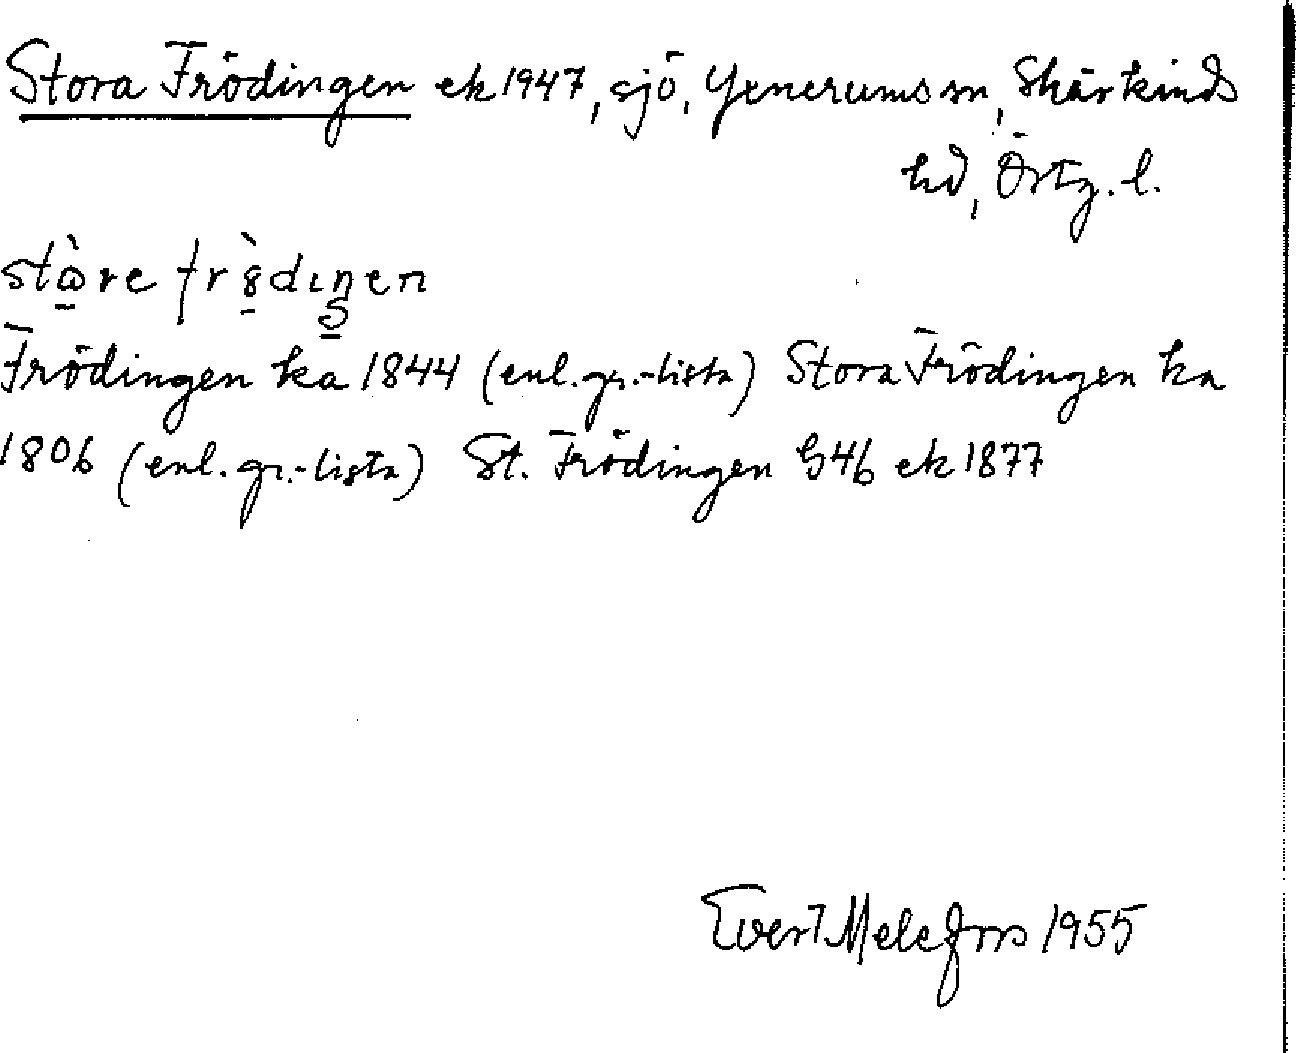 Stora Frödingen ek 1947, sjö, Yxnerums sn, Skärkinds
hd, Östg. l.
Frödingen ka 1844 (enl. gr.-lista) Stora Frödingen ka
1806 (enl. gr.-lista) St. Frödingen S46 ek 1877
Evert Melefors 1955